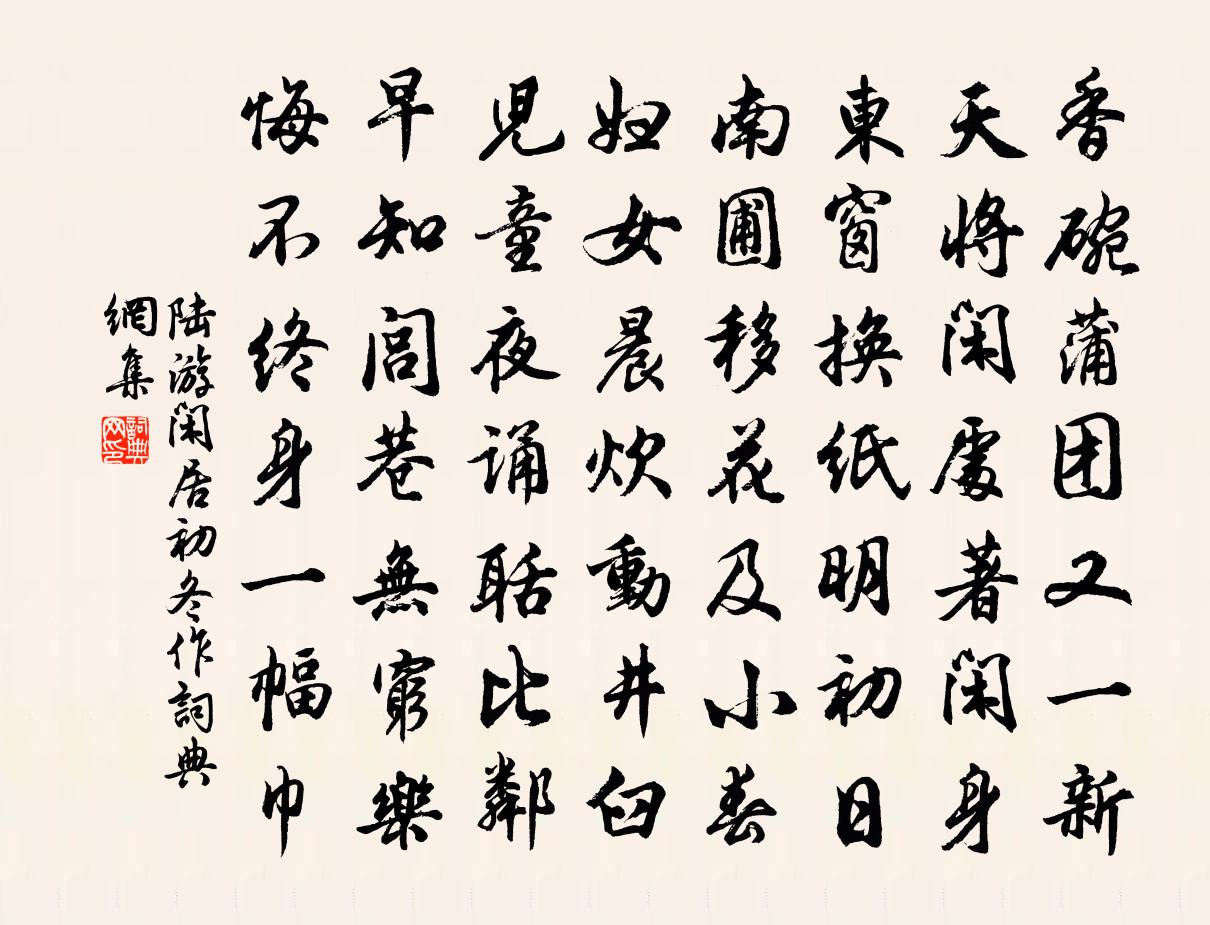 香碗蒲团又一新
天將閑處著閑身
東窗換纸明初日
南圃移花及小春
妇女晨炊動井臼
児童夜诵聒比鄰
早知閭巷無窮樂
悔不终身一幅巾
陆游閑居初冬作詞典
網集
詞典
网印